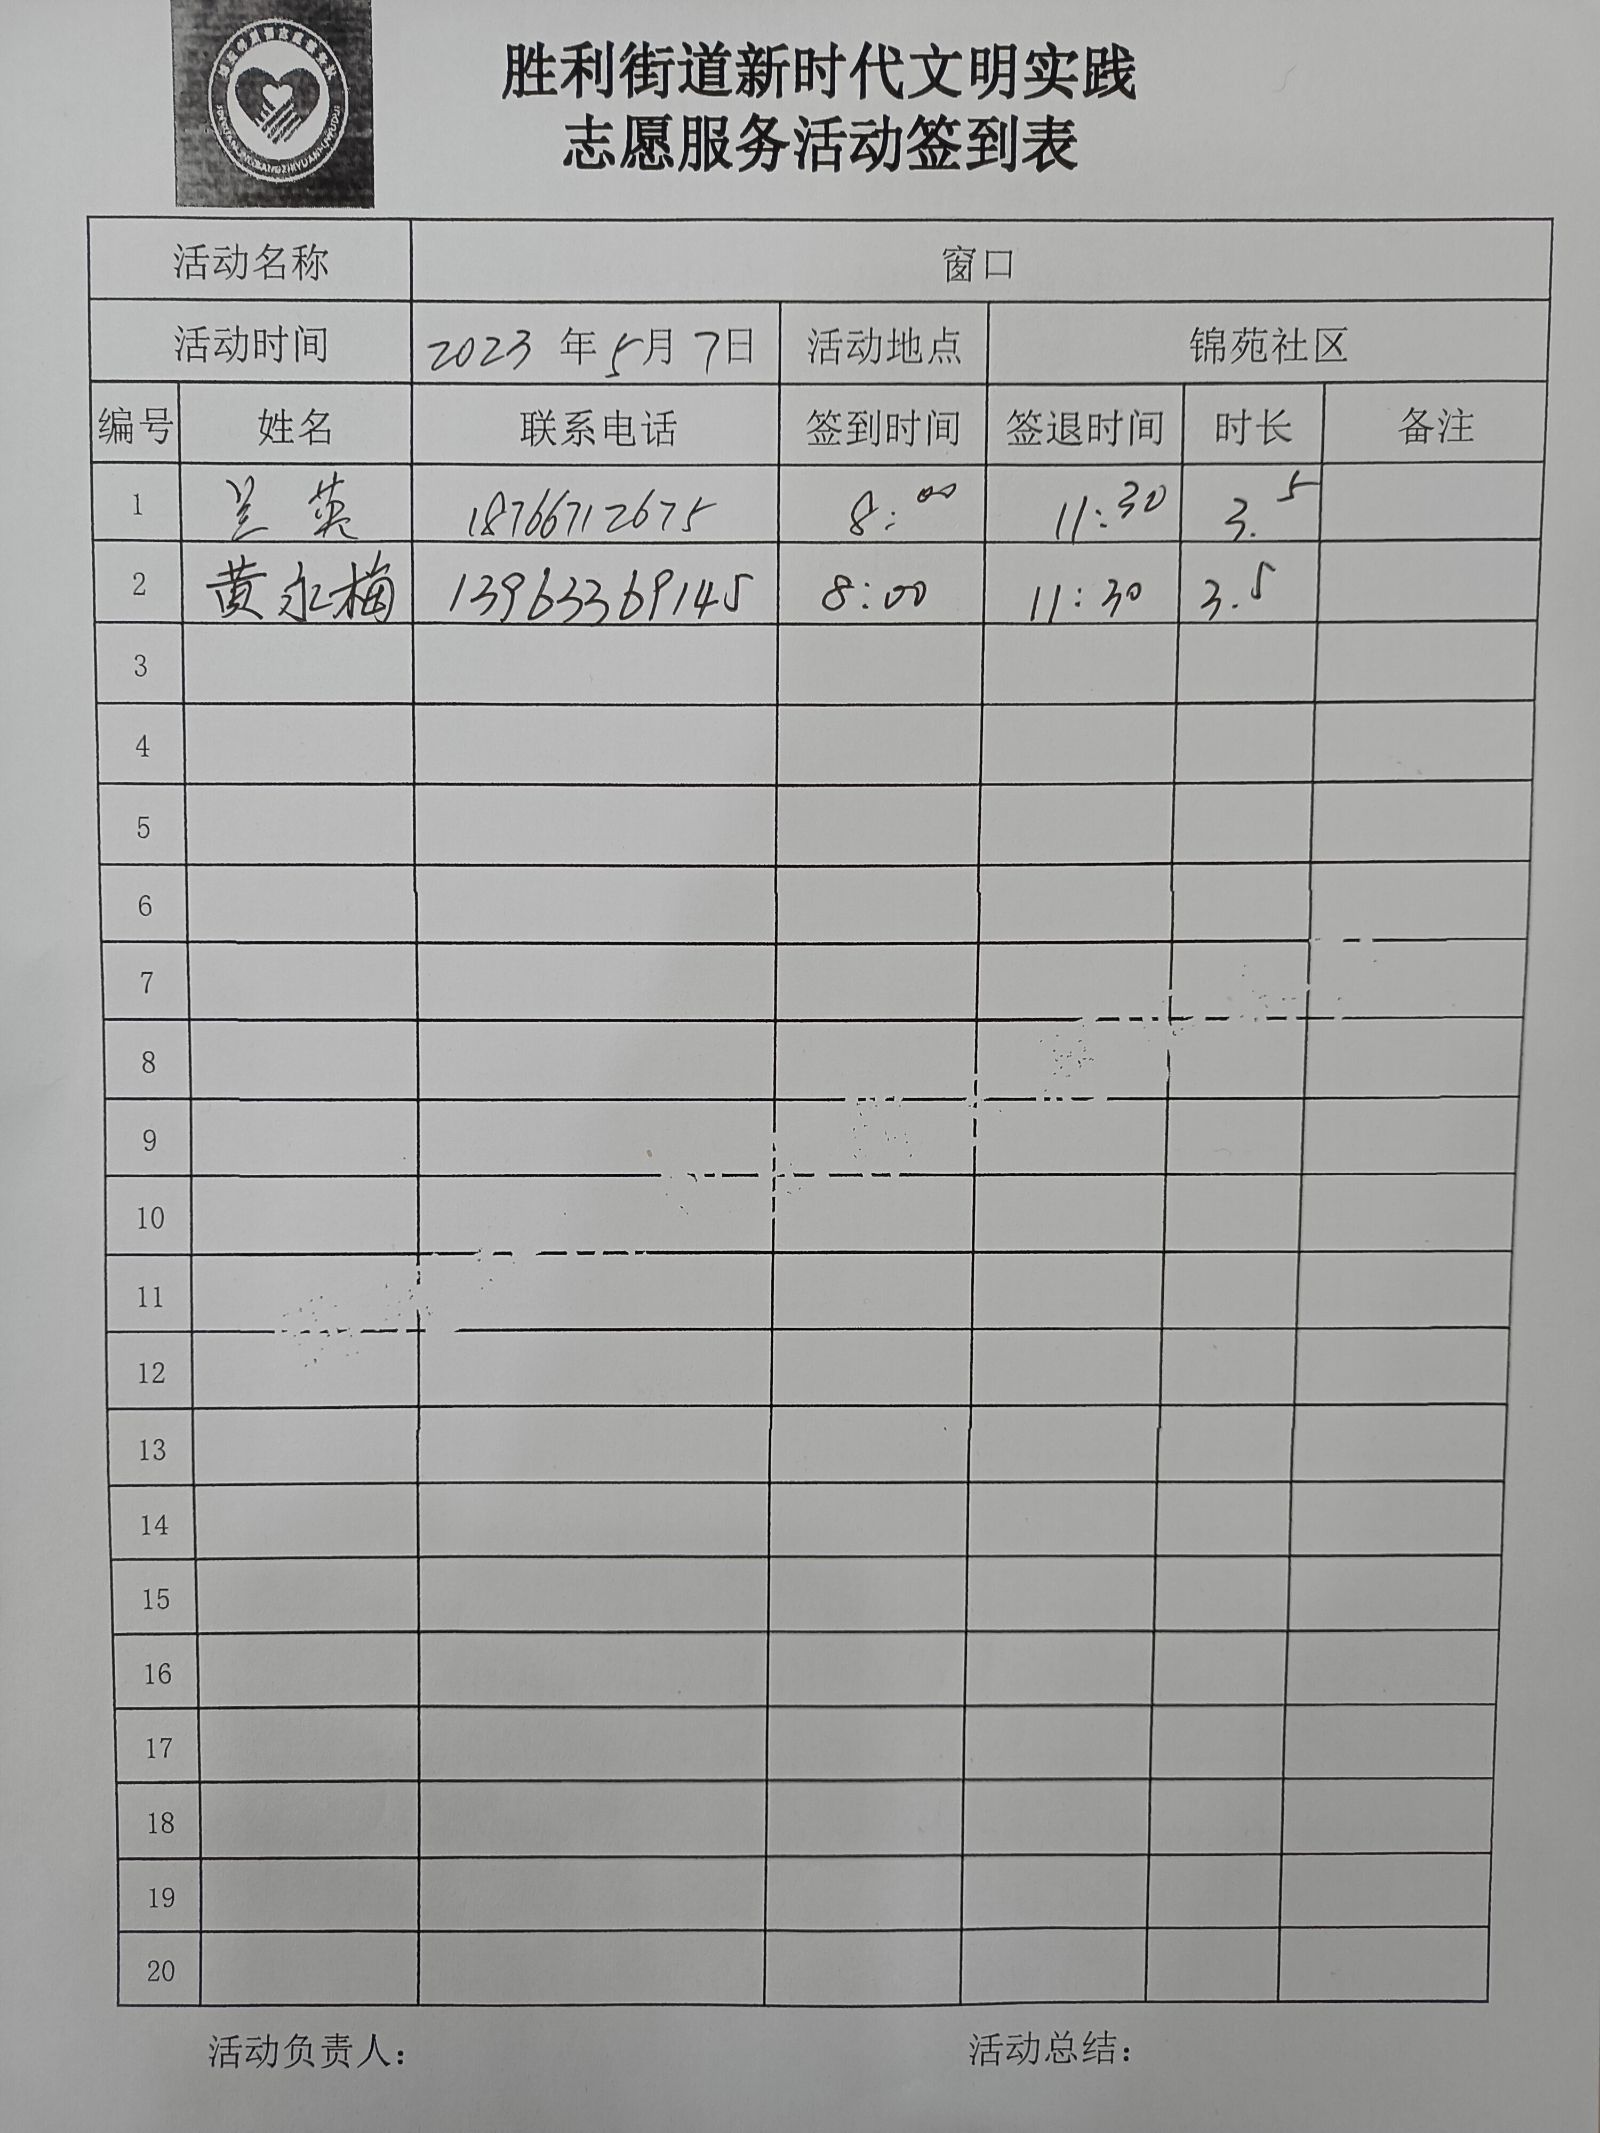 胜利街道新时代文明实践
志愿服务活动签到表
活动名称 窗口
活动时间 2023 年 5 月 7 日 活动地点 锦苑社区
编号 姓名 联系电话 签到时间 签退时间 时长 备注
1 兰英 18766712675 8:00 11:30 3.5
2 黄永梅 13963369145 8:00 11:30 3.5
3
4
5
6
7
8
9
10
11
12
13
14
15
16
17
18
19
20
活动负责人: 活动总结: